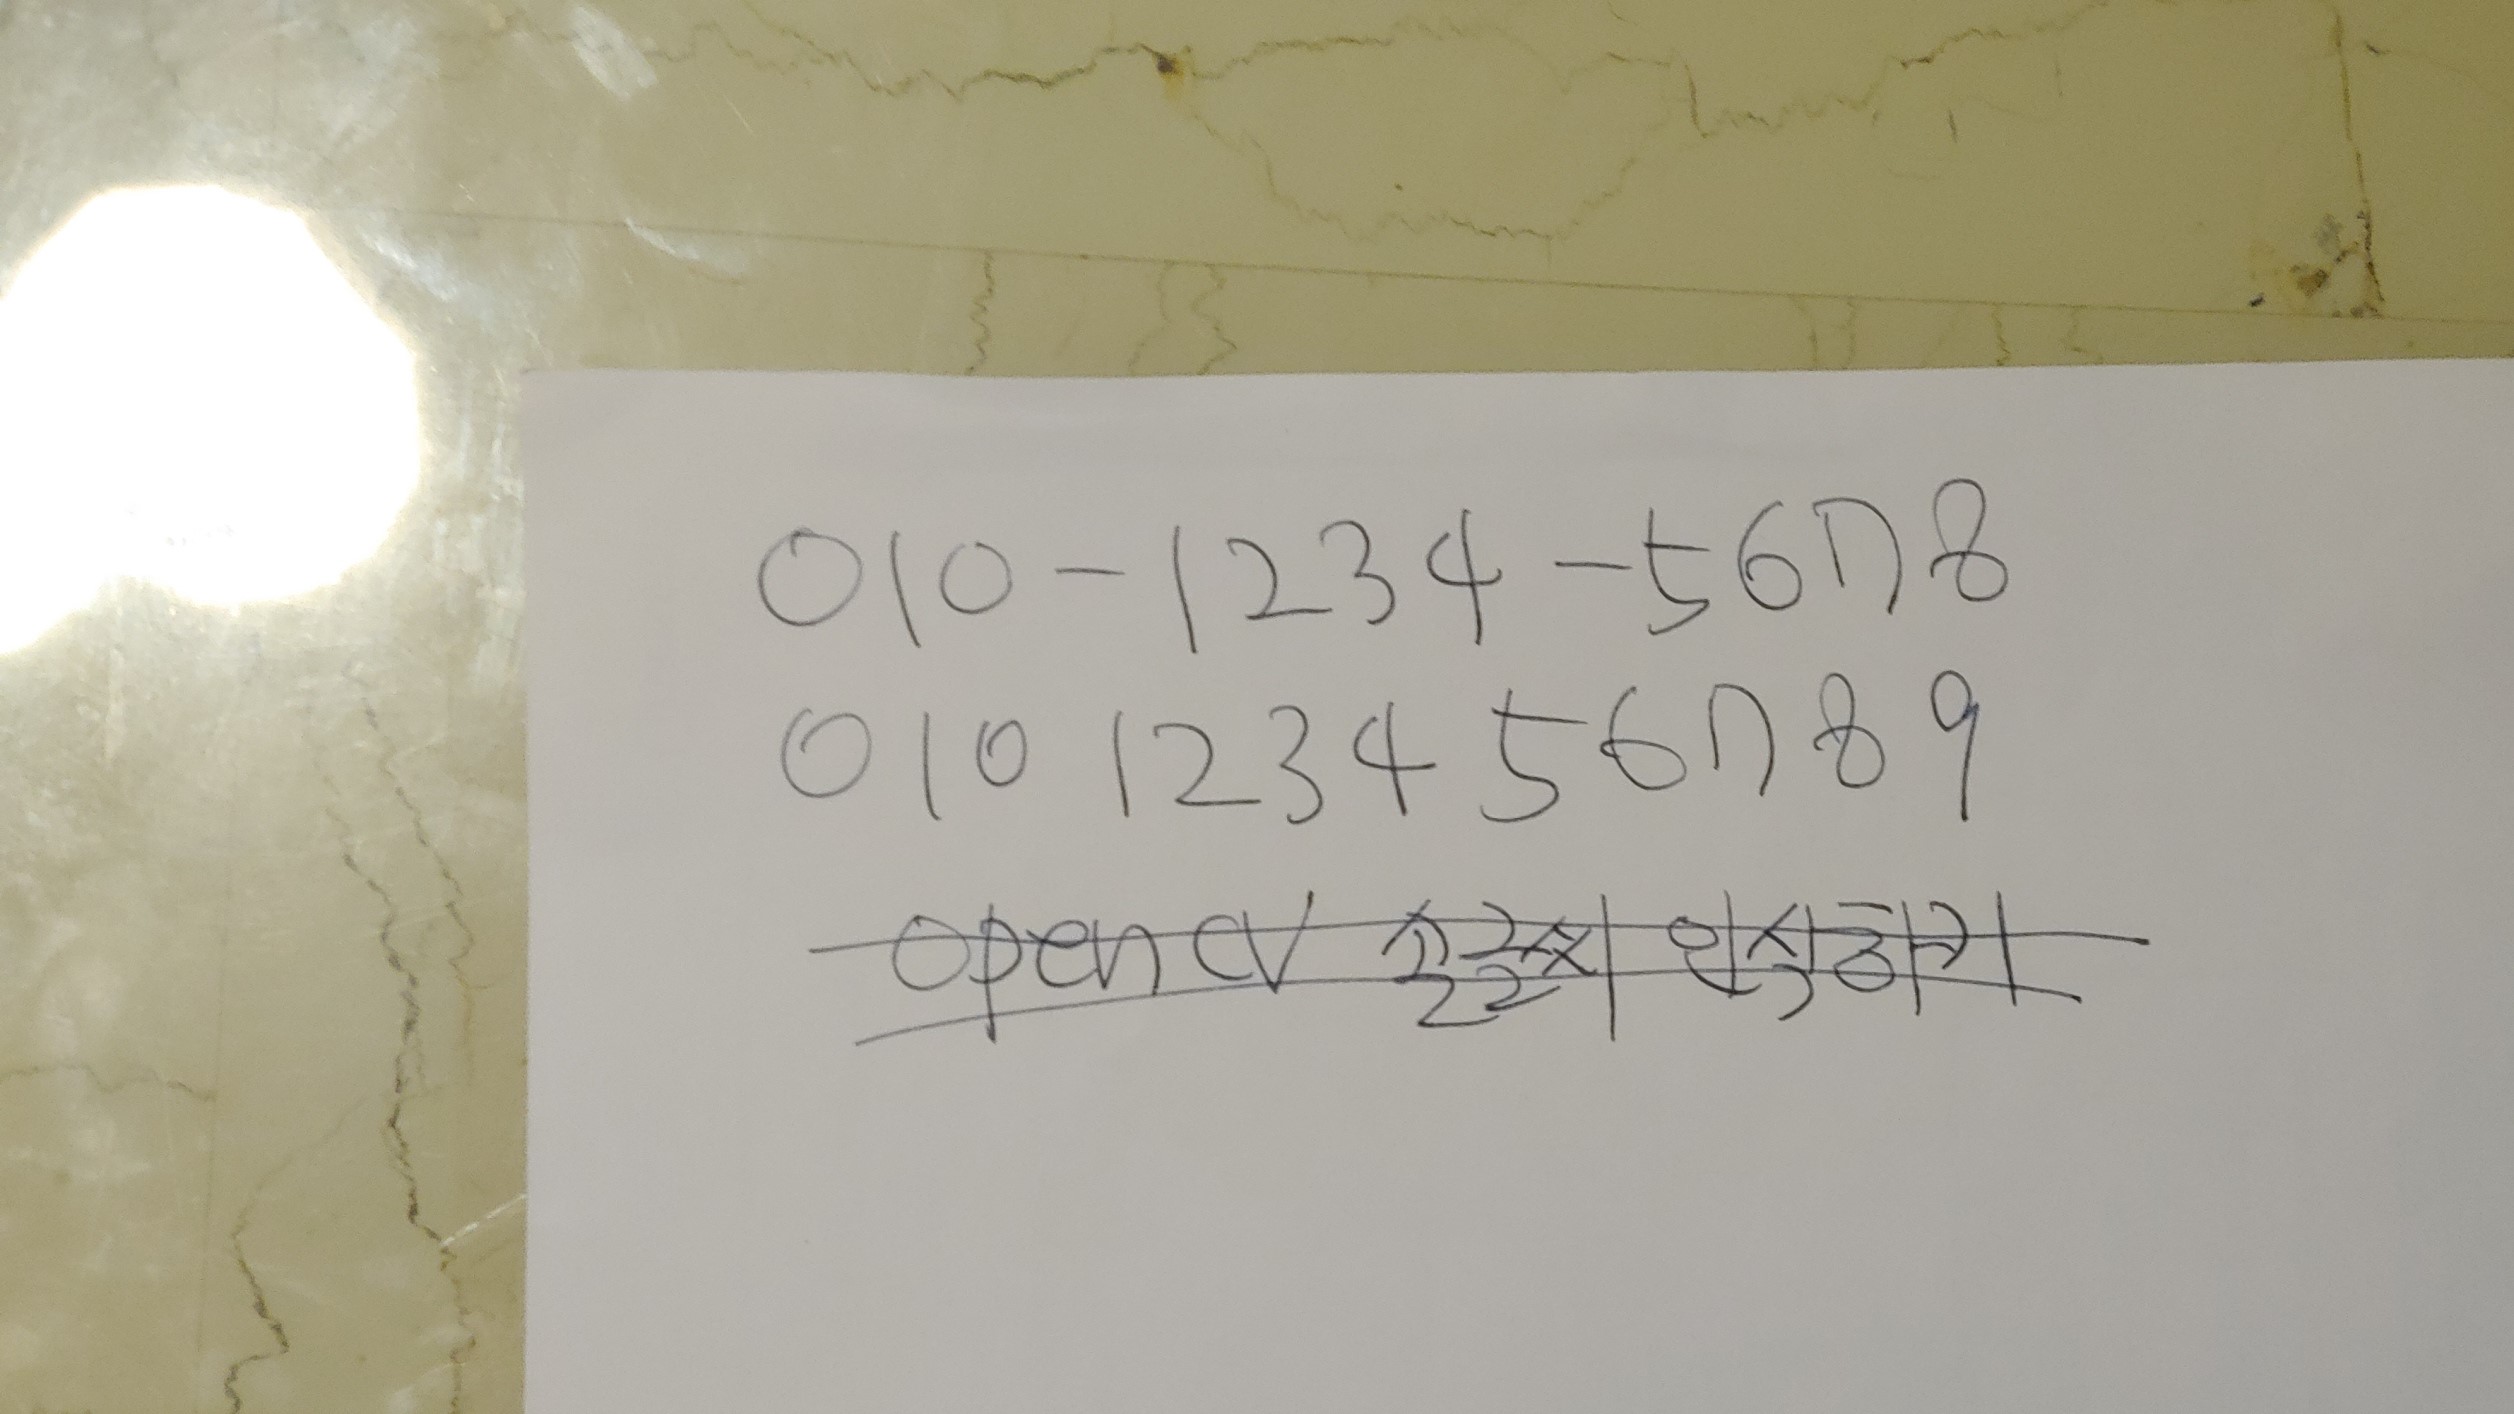 010-1234-5678
010 1234 56789
open cv 손글씨 인식하기